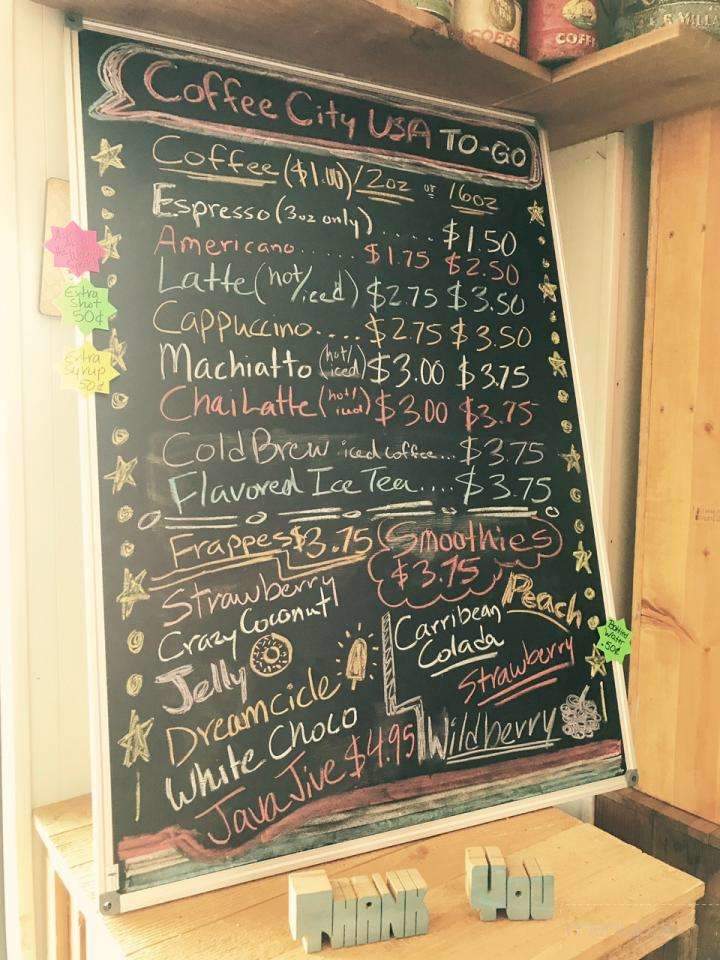 COFFEE
COFFE
Coffee City USA TO-GO
Coffee ($1.00) 12oz or 16oz
Espresso (3oz only) ..... $1.50
Americano ...... $1.75 $2.50
Latte (hot/iced) $2.75 $3.50
Extra Shot 50¢
Cappuccino .... $2.75 $3.50
Machiatto (hot/iced) $3.00 $3.75
Extra Syrup 50¢
Chai Latte (hot/iced) $3.00 $3.75
Cold Brew iced coffee... $3.75
Flavored Ice Tea .... $3.75
Frappes $3.75
Strawberry
Crazy Coconut
Jelly
Dreamcicle
White Choco
Java Jive $4.95
Smoothies
$3.75
Peach
Carribean
Colada
Strawberry
Wildberry
Bottled Water .50¢
THANK YOU